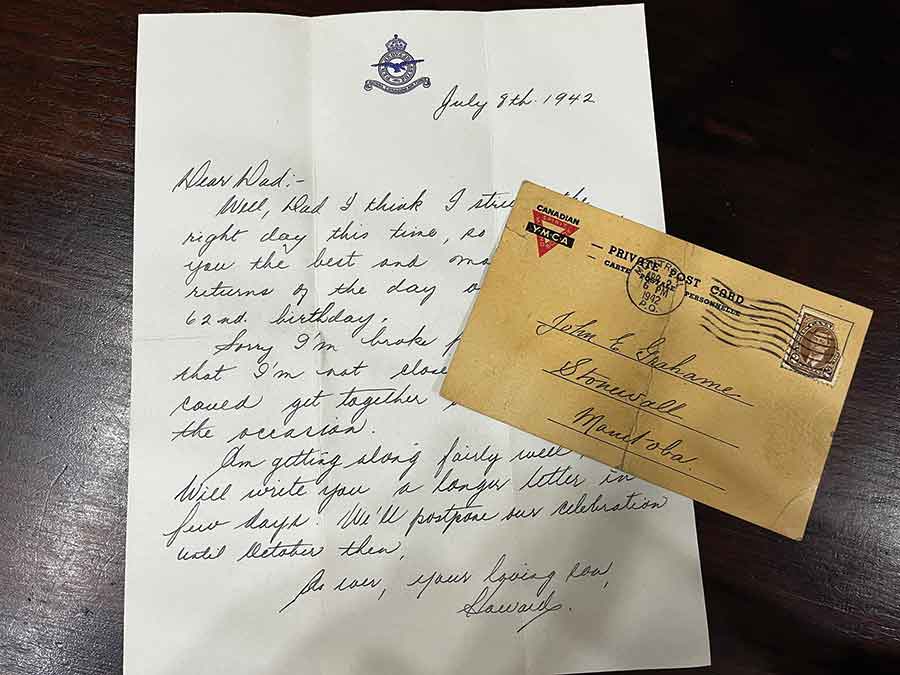 ROYAL CANADIAN AIR FORCE
July 9th. 1942
Dear Dad:-
Well, Dad I think I struck the
right day this time, so
you the best and
returns of the day
62nd. birthday.
Sorry I'm broke
that I'm not close
could get together
the occasion.
Am getting along fairly well
Will write you a longer letter in
few days. We'll postpone our celebration
until October then,
As ever, your loving son,
Howard.
CANADIAN
Y.M.C.A
— PRIVATE POST CARD —
— CARTE POSTALE PERSONNELLE
6 PM
1942
P.Q.
John E. Grahame
Stonewall
Manitoba.